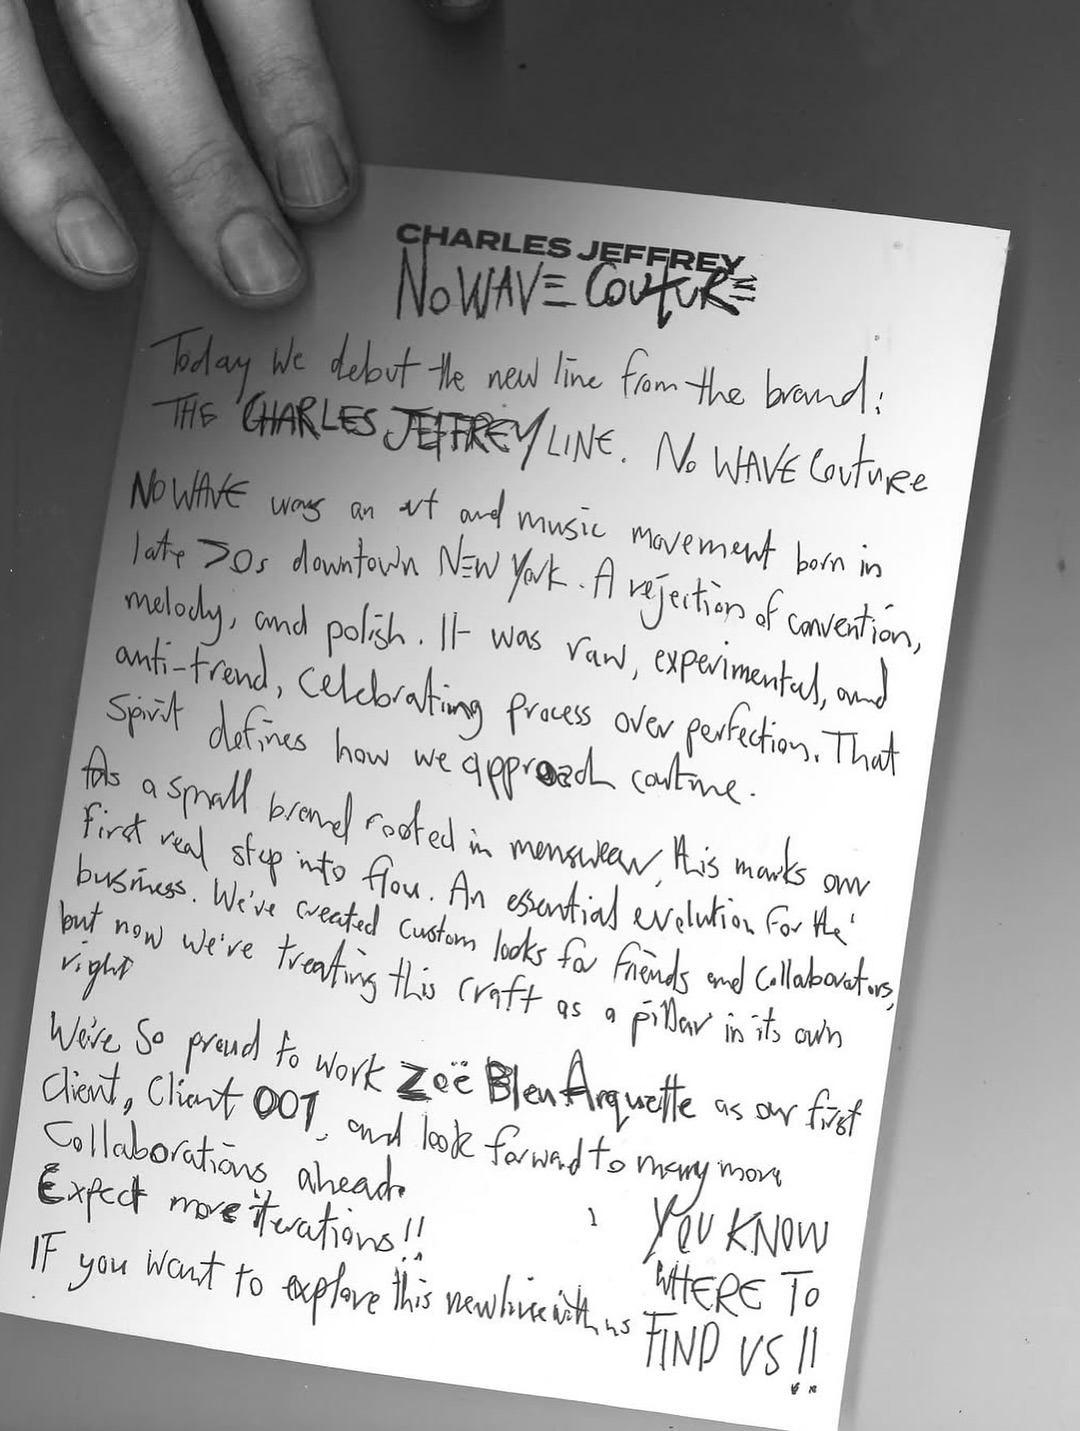 CHARLES JEFFREY
NO WAVE COUTURE
Today we debut the new line from the brand:
THE CHARLES JEFFREY LINE. No WAVE Couture
NO WAVE was an art and music movement born in
late 70s downtown NEW York. A rejection of convention,
melody, and polish. It was raw, experimental, and
anti-trend, celebrating process over perfection. That
spirit defines how we approach couture.
As a small brand rooted in menswear, this marks our
first real step into flou. An essential evolution for the
business. We've created custom looks for friends and collaborators,
but now we're treating this craft as a pillar in its own
right
We're so proud to work Zoë Bleu Arquette as our first
client, Client 001, and look forward to many more
collaborations ahead.
Expect more iterations!!
IF you want to explore this new line with us
YOU KNOW
WHERE TO
FIND US!!